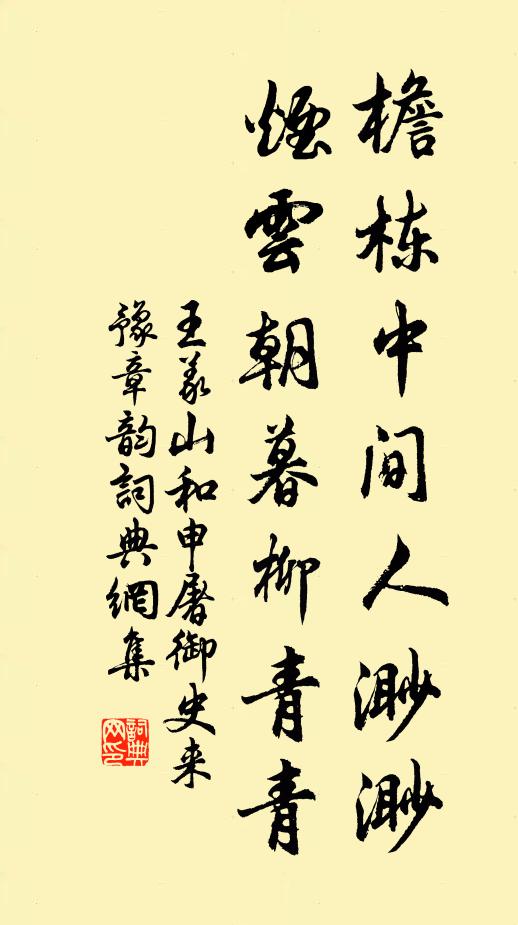 檐栋中间人渺渺
煙雲朝暮柳青青
王义山和申屠御史来
豫章韵詞典網集
詞典网印